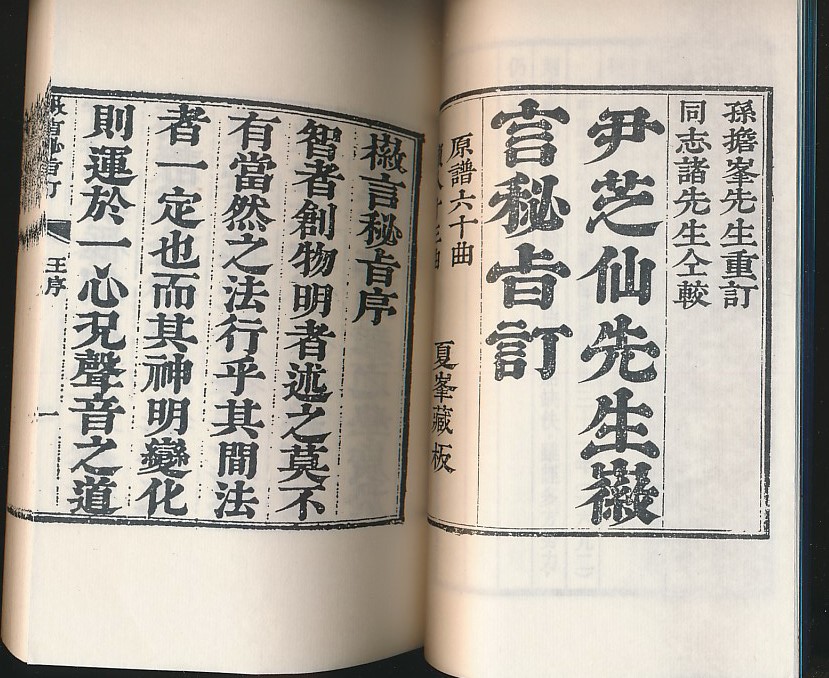 孫擔峯先生重訂
同志諸先生仝較
尹芝仙先生徽
言秘旨訂
原譜六十曲
夏峯藏板
徽言秘旨序
智者創物明者述之莫不
有當然之法行乎其間法
者一定也而其神明變化
則運於一心況聲音之道
王序
一